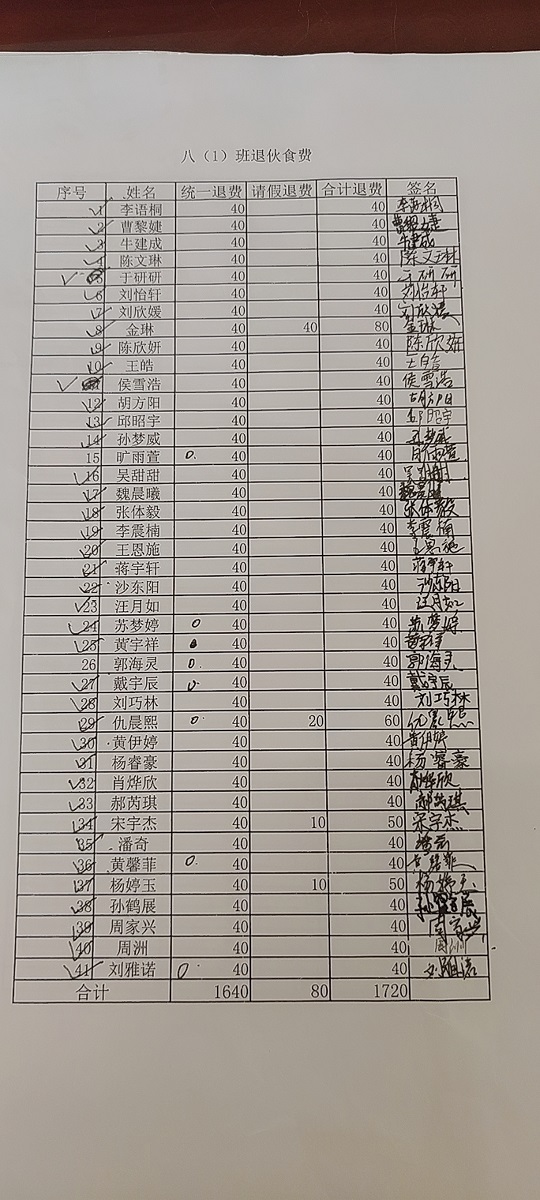 八（1）班退伙食费
序号 姓名 统一退费 请假退费 合计退费 签名
1 李语桐 40 40 李语桐
2 曹黎婕 40 40 曹黎婕
3 牛建成 40 40 牛建成
4 陈文琳 40 40 陈文琳
于研研 40 40 于研研
6 刘怡轩 40 40 刘怡轩
7 刘欣媛 40 40 刘欣媛
8 金琳 40 80 金琳
9 陈欣妍 40 40 陈欣妍
10 王皓 40 40 王皓
侯雪浩 40 40 侯雪浩
12 胡方阳 40 40 胡方阳
13 邱昭宇 40 40 邱昭宇
14 孙梦威 40 40 孙梦威
15 旷雨萱 40 40 旷雨萱
16 吴甜甜 40 40 吴甜甜
17 魏晨曦 40 40 魏晨曦
18 张体毅 40 40 张体毅
19 李震楠 40 40 李震楠
20 王恩施 40 40 王恩施
21 蒋宇轩 40 40 蒋宇轩
22 沙东阳 40 40 沙东阳
23 汪月如 40 40 汪月如
24 苏梦婷 40 40 苏梦婷
25 黄宇祥 40 40 黄宇祥
26 郭海灵 40 40 郭海灵
27 戴宇辰 40 40 戴宇辰
28 刘巧林 40 40 刘巧林
29 仇晨熙 40 20 60 仇晨熙
30 黄伊婷 40 40 黄伊婷
31 杨睿豪 40 40 杨睿豪
32 肖烨欣 40 40 肖烨欣
33 郝芮琪 40 40 郝芮琪
34 宋宇杰 40 10 50 宋宇杰
35 潘奇 40 40 潘奇
36 黄馨菲 40 40 黄馨菲
37 杨婷玉 40 10 50 杨婷玉
38 孙鹤展 40 40 孙鹤展
39 周家兴 40 40 周家兴
40 周洲 40 40 周洲
41 刘雅诺 40 40 刘雅诺
合计 1640 80 1720